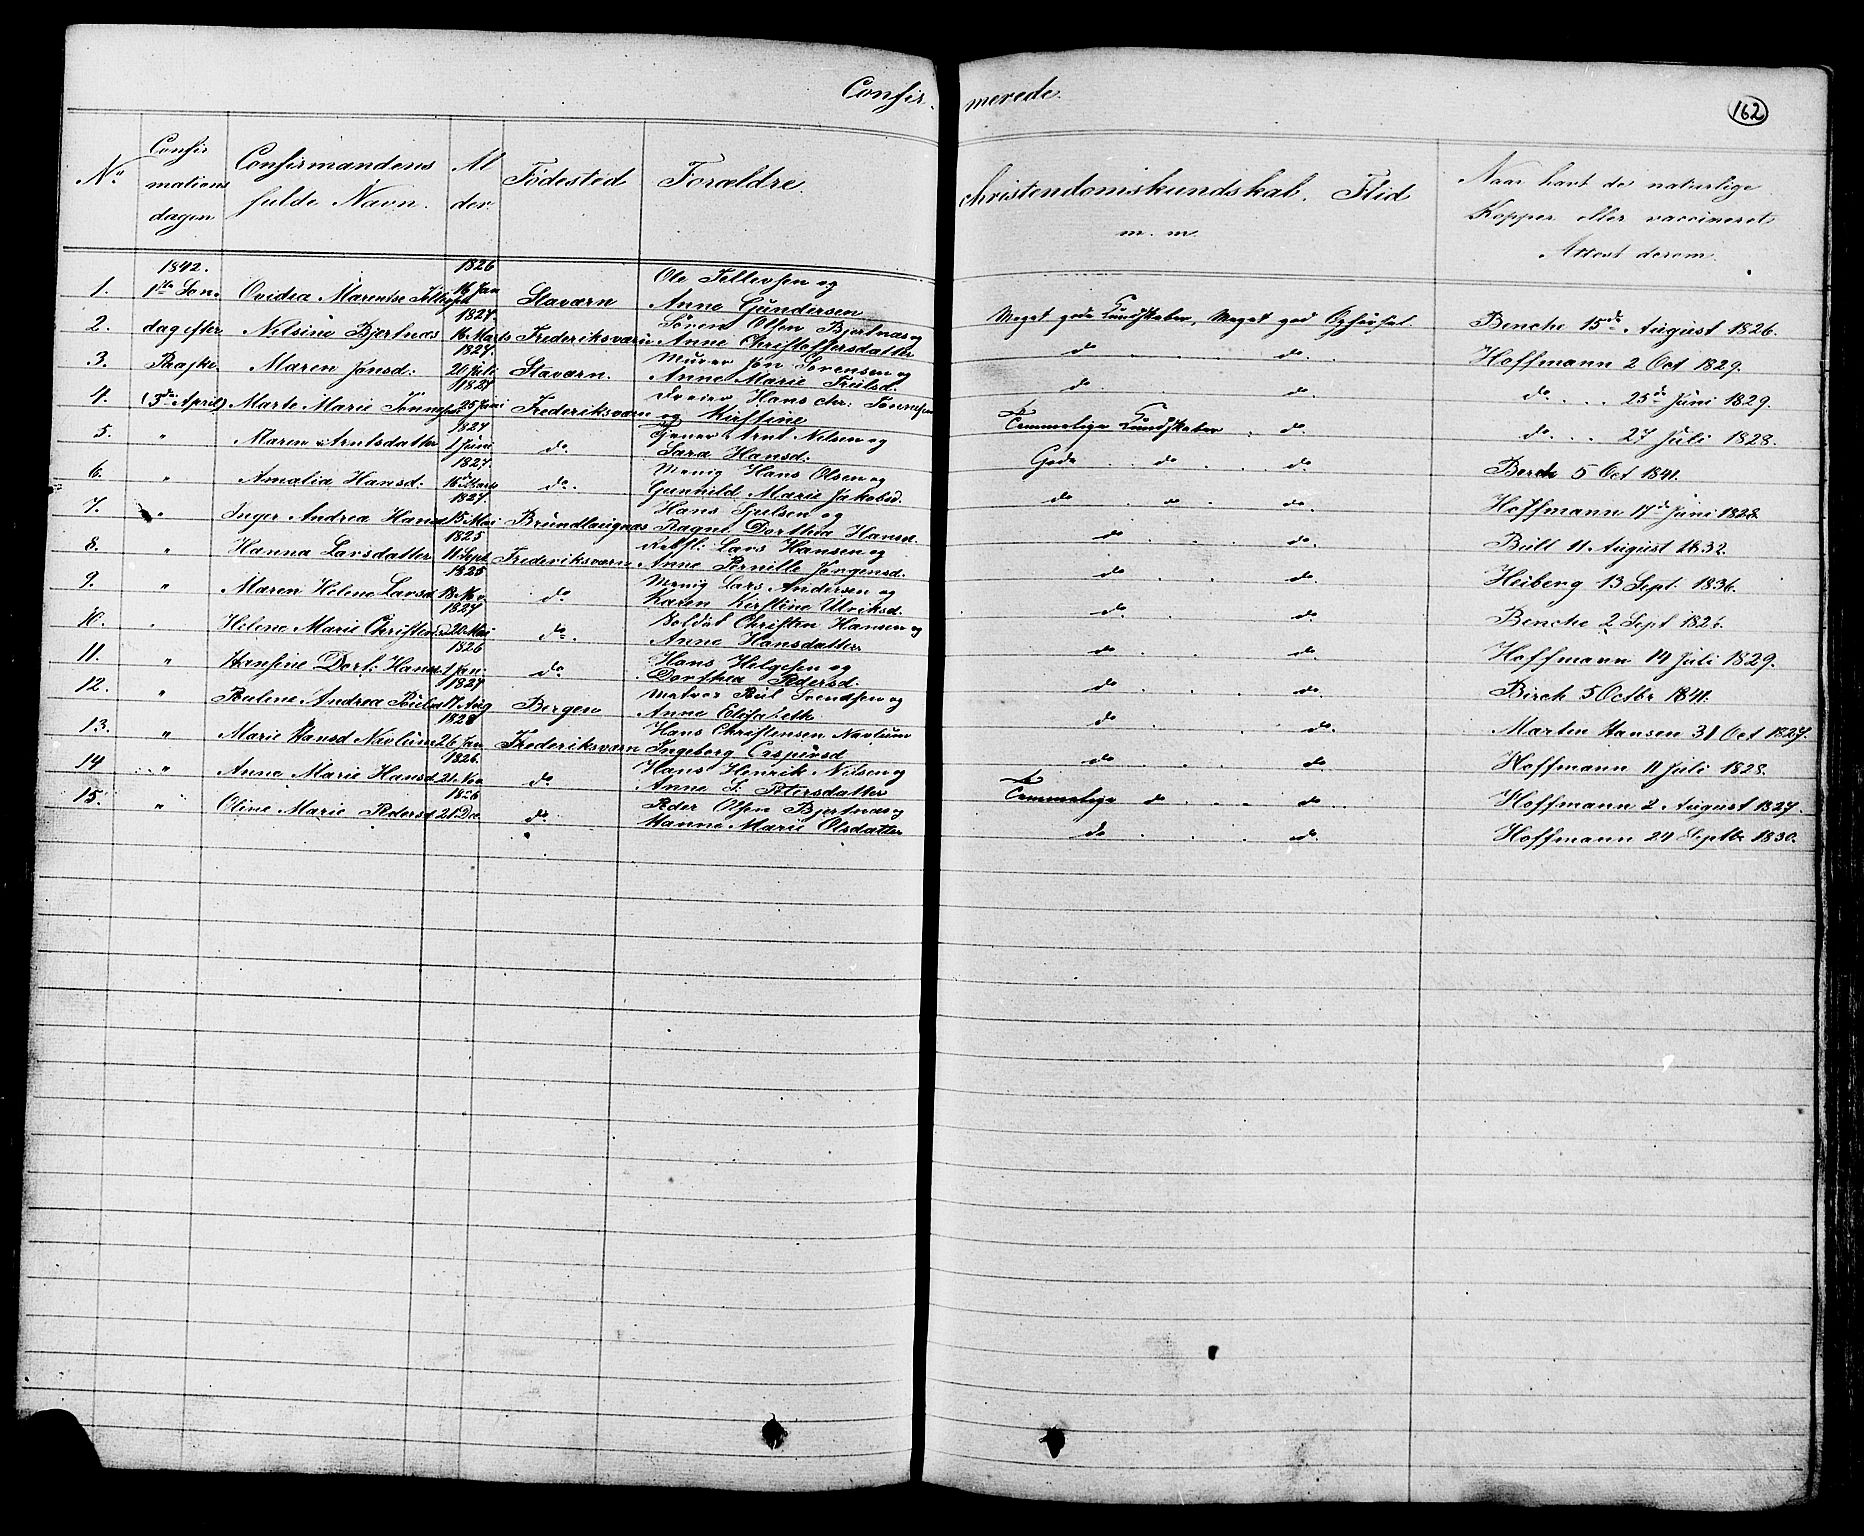 Confir- merede.
162
No Confirmationsdagen Confirmandens fulde Navn. Alder. Födested Forældre. Christendomskundskab. Flid m. m. Naar havt de naturlige Kopper eller vaccineret Attest derom.
1842. 1826 Ole Tellevsen og
1. 1ste Søn- Ovidia Marentse 16 Jan Staværn Anne Gundersen Meget gode Kundskaber, Meget god Opførsel. Benche 15de August 1826.
1827. Sören Olsen Bjertnæs og
2. dag efter Nelsine Bjertnæs 16 Marts Frederiksværn Anne Christoffersdatter do do. Hoffmann 2 Oct 1829.
1827. Murer Jon Sörensen og
3. Paaske Maren Jonsd: 20 Juli Staværn. Anne Marie Truls d. do do. do. 25de Juni 1829.
1827 Hans Chr: Tönnesen
4. (3die April) Marte Marie 25 Juni Frederiksværn og Kirstine Temmelige Kundskaber do. do. 27 Juli 1828.
1827 Arnt Nilsen og
5. " Maren Arntsdatter 1 Juni do. Sara Hansd. Gode do do Berch 5 Oct 1841.
1827. Menig Hans Olsen og
6. " Amalia Hansd. 16 Marts do. Gunnild Marie Jakobsd. do do do. Hoffmann 17de Juni 1828.
1827 Hans Tjulsen og
7. " Inger Andrea Hansd 15 Mai Brundlaugnæs Ragne Dorthea Hansd. do do. Bull 11 August 1832.
1825 Lars Hansen og
8. " Hanna Larsdatter 11 Sept. Frederiksværn Anne Pernille Jörgensd. do do. Heiberg 13 Sept. 1836.
1825 Menig Lars Andersen og
9. " Maren Helene Larsd 18 Nov do Karen Kirstine Ulriksd. do do. Benche 2 Sept 1826.
1827 Soldat Christen Hansen og
10. " Helene Marie Christensd 20 Mai do. Anne Hansdatter do do. Hoffmann 14 Juli 1829.
1826 Hans Helgesen og
11. " Hansine Dort: Hansd 1 Jan. do Dorthea Pedersd. do do. Birch 5 Octbr 1841.
1827 Matros Svendsen og
12. " Andrea 17 Aug Bergen Anne Elisabeth do do. Martin Hansen 31 Oct 1827.
1828 Hans Christensen Navlum
13. " Marie Hansd Navlum 26 Jan Frederiksværn Ingeborg Caspersd do do. Hoffmann 11 Juli 1828.
1826. Hans Henrik Nilsen og
14 " Anne Marie Hansd 21 Nov do Anne S. Petersdatter Temmelige do do Hoffmann 2 August 1827.
1826 Peder Olsen Bjertnæs og
15. " Oline Marie Pedersd 21 Dec do. Hanne Marie Olsdatter do do. Hoffmann 24 Septbr 1830.